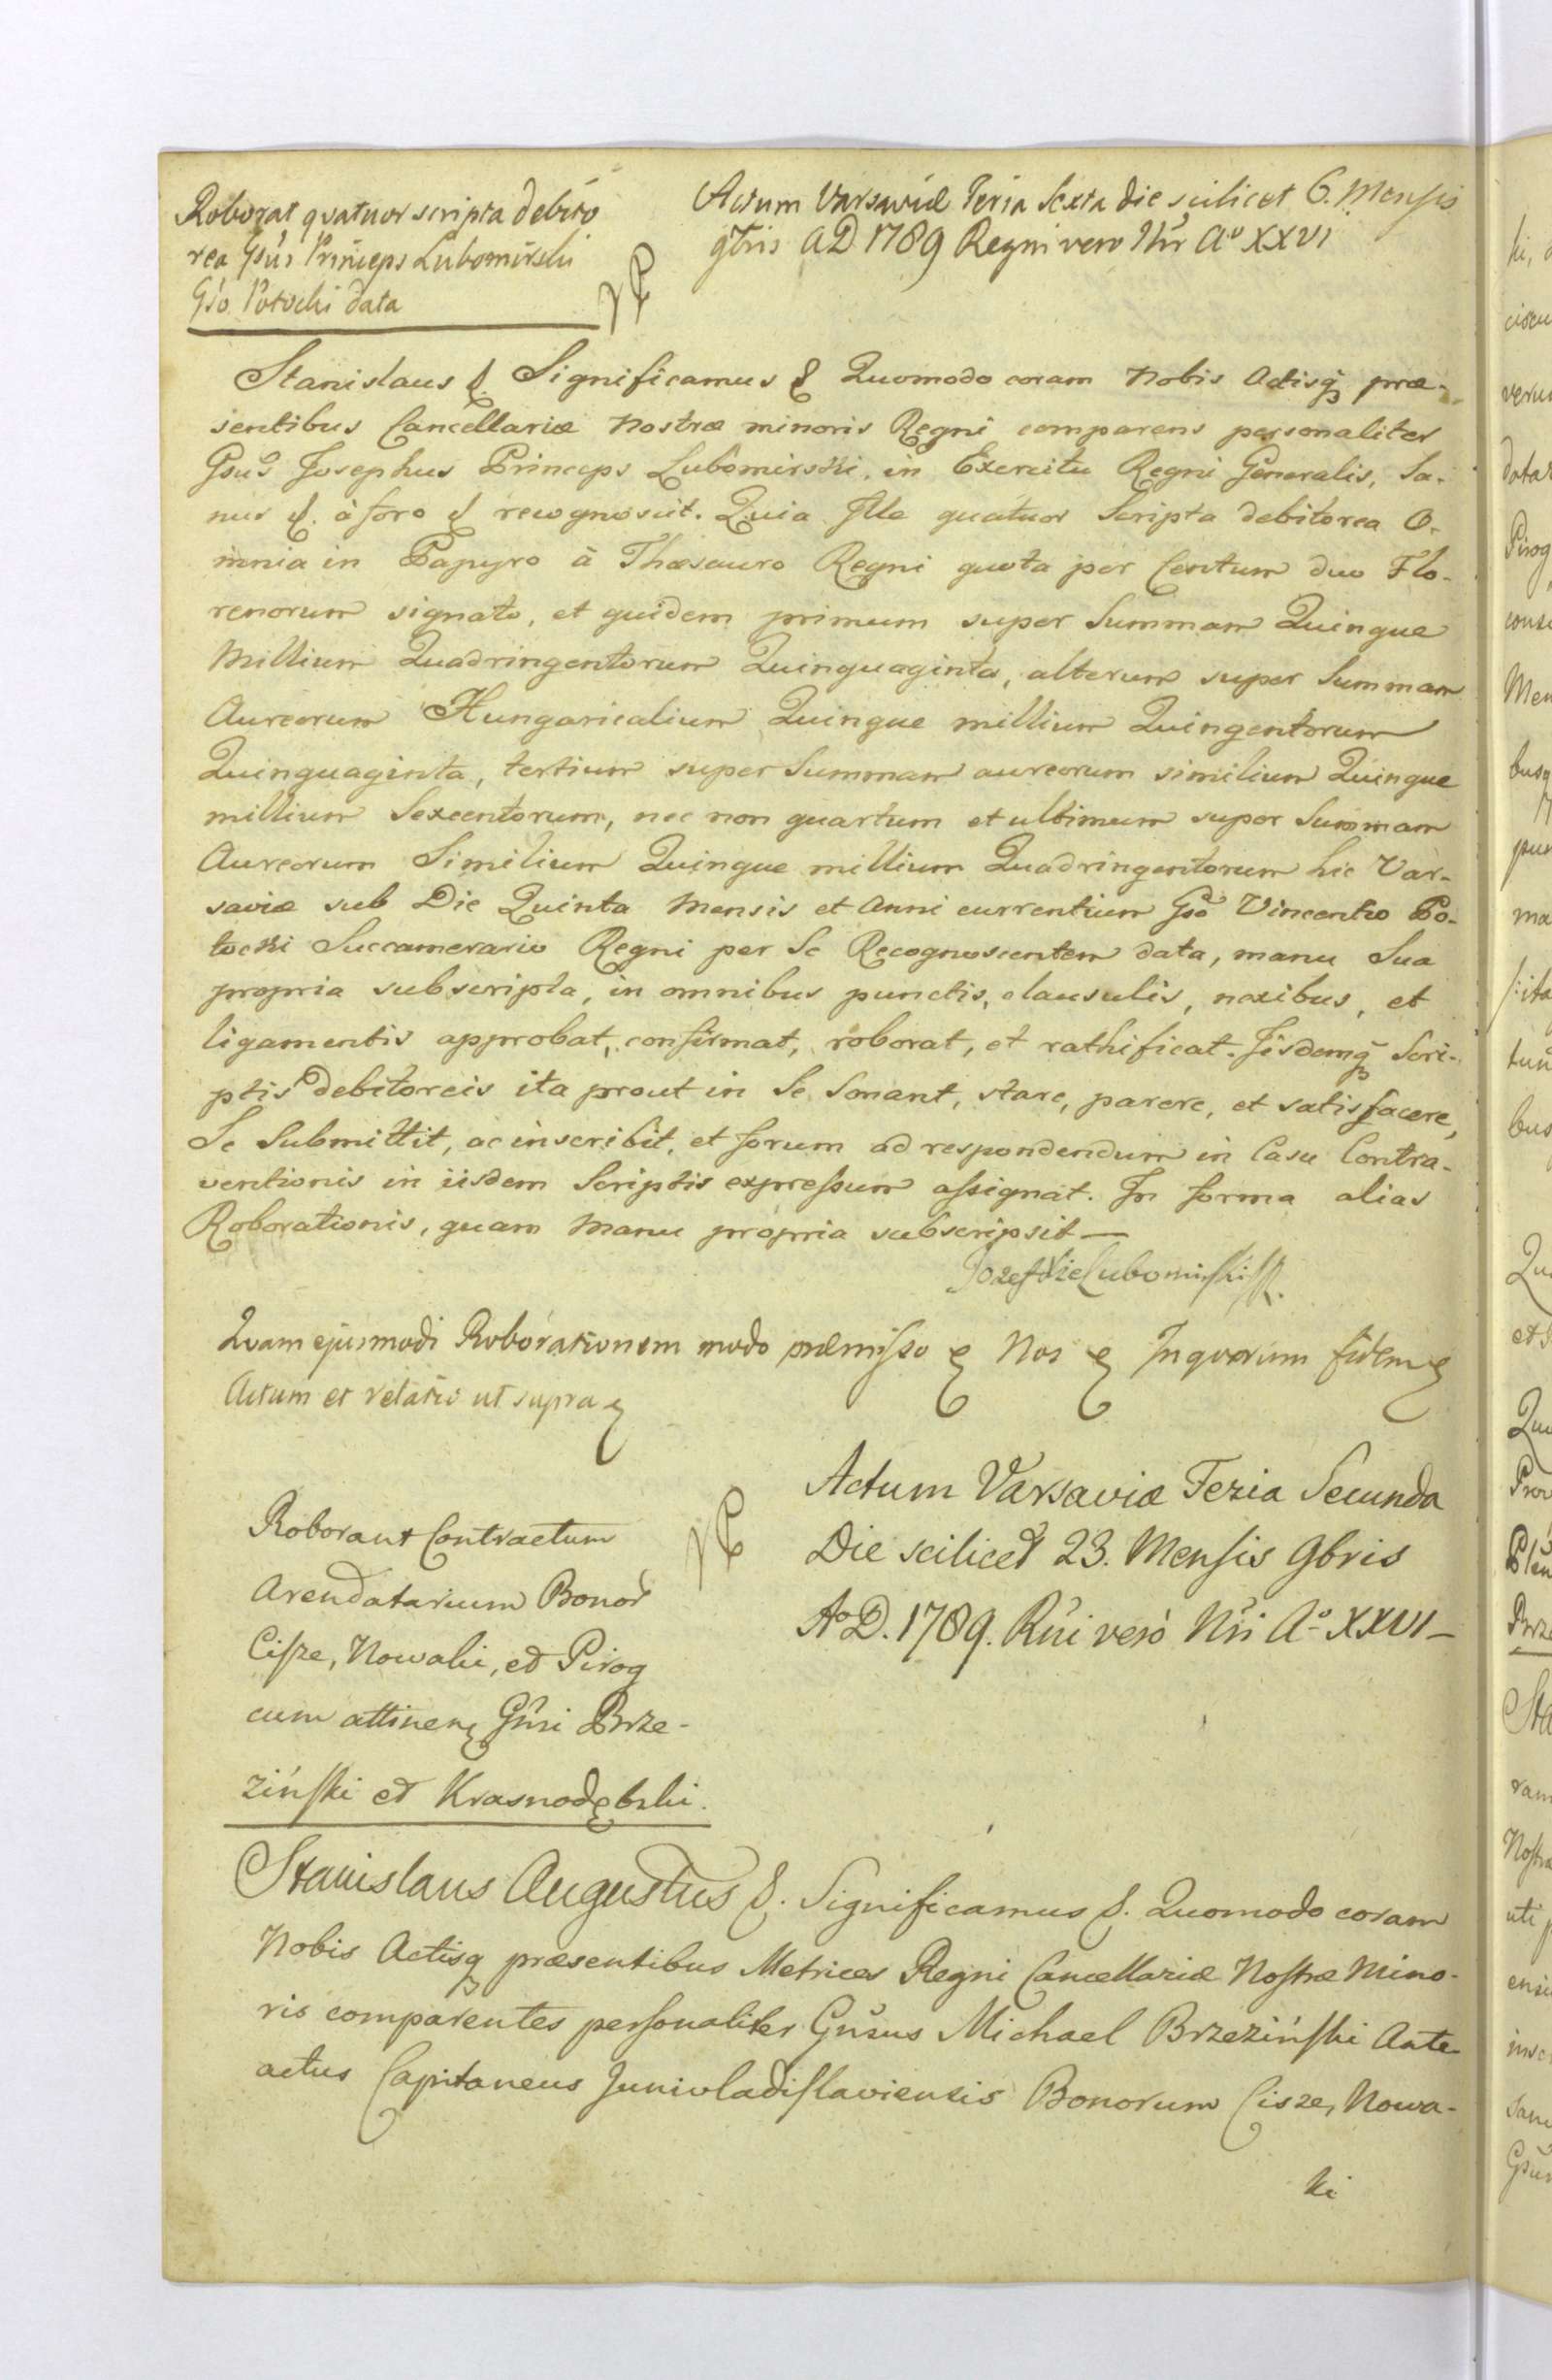 Roborat quatuor scripta debito
rea Gsus Princeps Lubomirski
Gso Potocki data
Actum Varsaviæ Feria Sexta die scilicet 6. Mensis
9bris AD 1789 Regni vero Nri Ao XXVI
Stanislaus &. Significamus & Quomodo coram Nobis Actisq præ-
sentibus Cancellariæ Nostræ minoris Regni comparens personaliter
Gsus Josephus Princeps Lubomirski, in Exercitu Regni Generalis, Sa-
nus &. à foro & recognoscit. Quia Ille quatuor Scripta debitorea O-
mnia in Papyro à Thesauro Regni quota per Centum duo Flo-
renorum signato, et quidem primum super Summam Quinque
Millium Quadringentorum Quinquaginta, alterum super Summam
Aureorum Hungaricalium Quinque millium Quingentorum
Quinquaginta, tertium super Summam aureorum similium Quinque
millium Sexcentorum, nec non quartum et ultimum super Summam
Aureorum Similium Quinque millium Quadringentorum hic Var-
saviæ sub Die Quinta Mensis et Anni currentium Gso Vincentio Po-
tocki Succamerario Regni per Se Recognoscentem data, manu Sua
propria subscripta, in omnibus punctis, clausulis, nexibus, et
ligamentis approbat, confirmat, roborat, et rathificat. Iisdemq Scri-
ptis debitoreis ita prout in Se Sonant, stare, parere, et satisfacere,
Se Submittit, ac inscribit, et forum ad respondendum in Casu Contra-
ventionis in iisdem Scriptis expressum assignat. In forma alias
Roborationis, quam Manu propria subscripsit —
Jozef Xże Lubomirski
Quam ejusmodi Roborationem modo præmisso & Nos & In quorum fidem &
Actum et relatio ut supra &
Roborant Contractum
Arendatarium Bonor
Cisze, Nowaki, et Pirog
cum attinen Gnsi Brze-
ziński et Krasnodębski.
Actum Varsaviæ Feria Secunda
Die scilicet 23. Mensis 9bris
Ao D. 1789. Rni vero Nri Ao XXVI —
Stanislaus Augustus &. Significamus &. Quomodo coram
Nobis Actisq præsentibus Metrices Regni Cancellariæ Nostræ Mino-
ris comparentes personaliter Gnsus Michael Brzeziński Ante
actus Capitaneus Junivladislaviensis Bonorum Cisze, Nowa-
ki